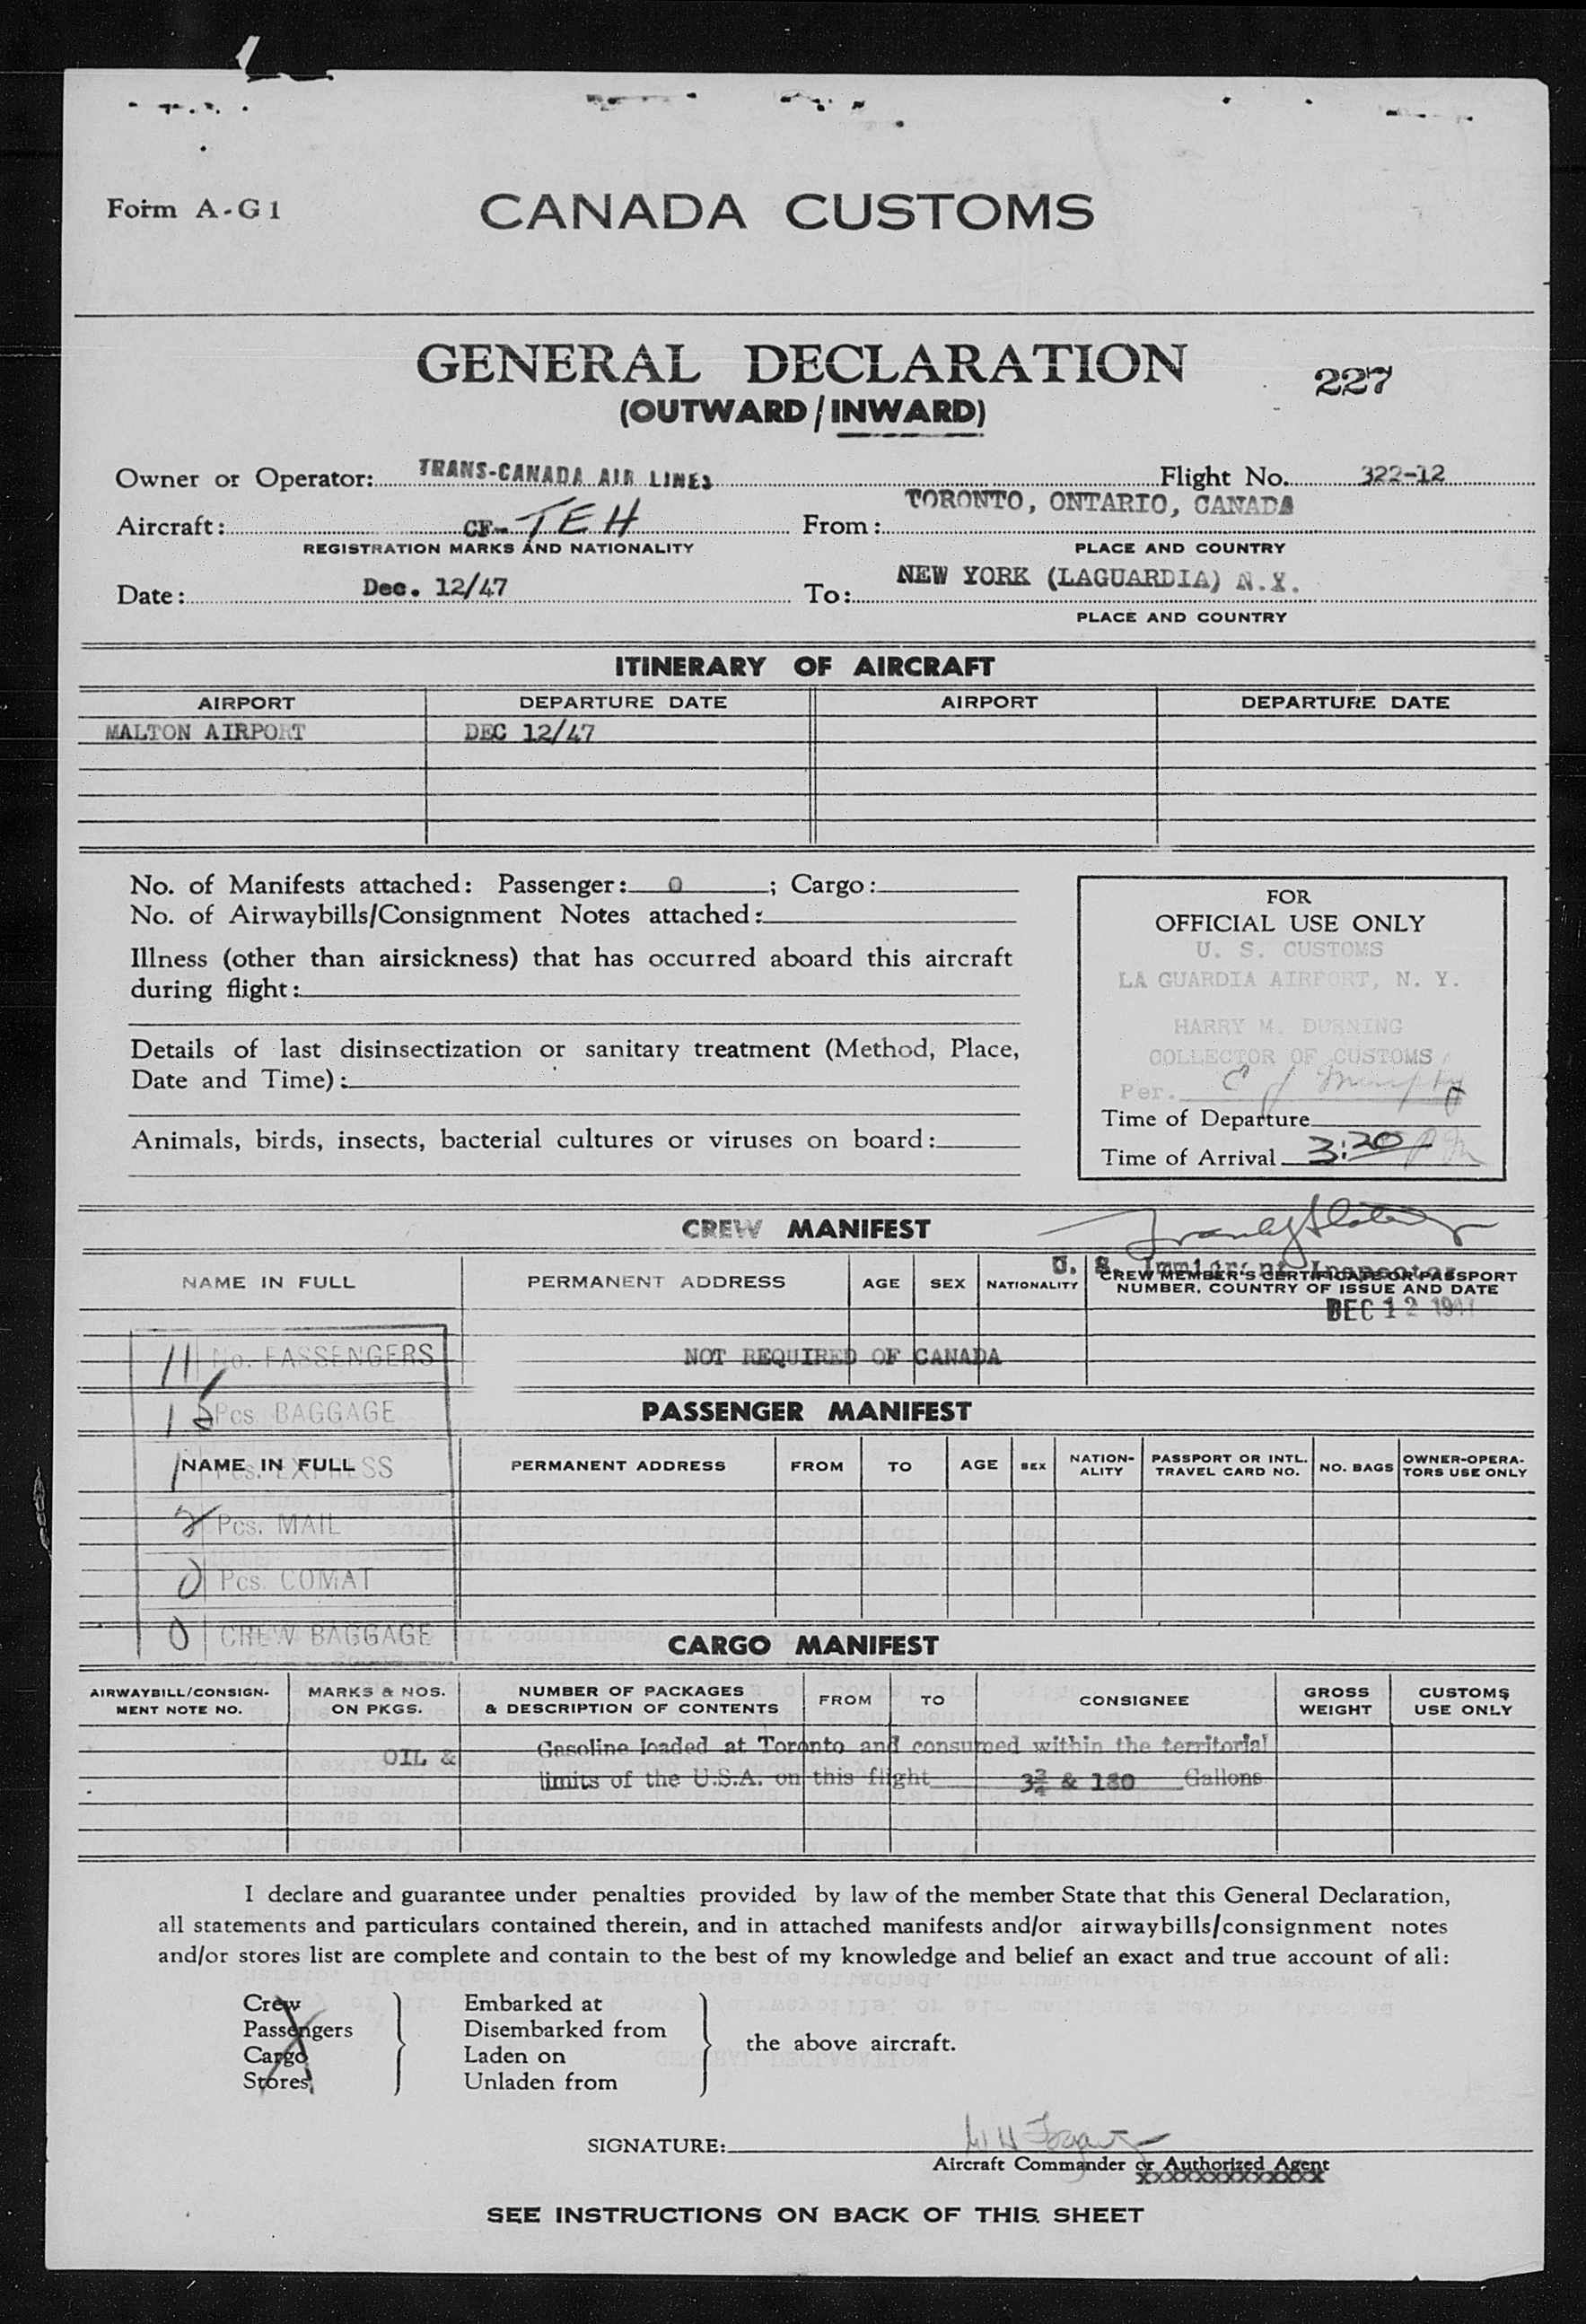 Form A-G1
CANADA CUSTOMS
GENERAL DECLARATION
227
(OUTWARD/INWARD)
Owner or Operator: TRANS-CANADA AIR LINES Flight No. 322-12
Aircraft: CF- TEH From: TORONTO, ONTARIO, CANADA
REGISTRATION MARKS AND NATIONALITY PLACE AND COUNTRY
Date: Dec. 12/47 To: NEW YORK (LAGUARDIA) N.Y.
PLACE AND COUNTRY
ITINERARY OF AIRCRAFT
AIRPORT DEPARTURE DATE AIRPORT DEPARTURE DATE
MALTON AIRPORT DEC 12/47
No. of Manifests attached: Passenger: 0 ; Cargo:
No. of Airwaybills/Consignment Notes attached:
Illness (other than airsickness) that has occurred aboard this aircraft
during flight:
Details of last disinsectization or sanitary treatment (Method, Place,
Date and Time):
Animals, birds, insects, bacterial cultures or viruses on board:
FOR
OFFICIAL USE ONLY
U. S. CUSTOMS
LA GUARDIA AIRPORT, N. Y.
HARRY M. DURNING
COLLECTOR OF CUSTOMS
Per. E J Murphy
Time of Departure
Time of Arrival 3:20 PM
CREW MANIFEST
U. S. Immigrant Inspector
NAME IN FULL PERMANENT ADDRESS AGE SEX NATIONALITY CREW MEMBER'S CERTIFICATE OR PASSPORT
NUMBER, COUNTRY OF ISSUE AND DATE
DEC 12 1947
11 No. PASSENGERS
NOT REQUIRED OF CANADA
Pcs. BAGGAGE
PASSENGER MANIFEST
1 Pcs. EXPRESS
NAME IN FULL PERMANENT ADDRESS FROM TO AGE SEX NATION-
ALITY PASSPORT OR INTL.
TRAVEL CARD NO. NO. BAGS OWNER-OPERA-
TORS USE ONLY
2 Pcs. MAIL
0 Pcs. COMAT
0 CREW BAGGAGE
CARGO MANIFEST
AIRWAYBILL/CONSIGN-
MENT NOTE NO. MARKS & NOS.
ON PKGS. NUMBER OF PACKAGES
& DESCRIPTION OF CONTENTS FROM TO CONSIGNEE GROSS
WEIGHT CUSTOMS
USE ONLY
OIL & Gasoline loaded at Toronto and consumed within the territorial
limits of the U.S.A. on this flight 3¾ & 180 Gallons
I declare and guarantee under penalties provided by law of the member State that this General Declaration,
all statements and particulars contained therein, and in attached manifests and/or airwaybills/consignment notes
and/or stores list are complete and contain to the best of my knowledge and belief an exact and true account of all:
Crew Embarked at
Passengers Disembarked from
Cargo Laden on
Stores Unladen from
the above aircraft.
SIGNATURE:
Aircraft Commander or Authorized Agent
SEE INSTRUCTIONS ON BACK OF THIS SHEET